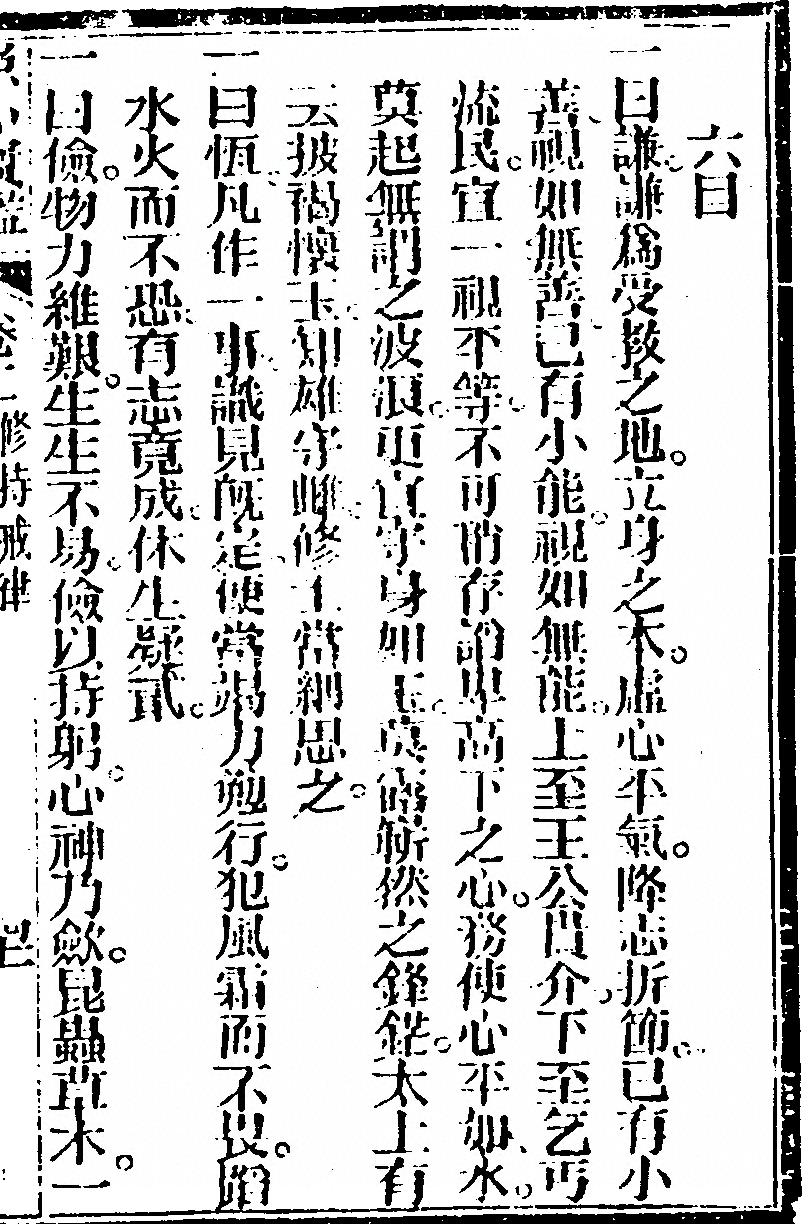 六曰
一曰謙。謙爲受教之地。立身之本。虛心平氣。降志折節。已有小
善。視如無善。已有小能。視如無能。上至王公貴介。下至乞丐
流民。宜一視平等。不可稍存謟卑高下之心。務使心平如水。
莫起無謂之波浪。更宜守身如玉。莫露嶄然之鋒鋩。太上有
云披褐懷玉。知雄守雌。修士當細思之。
一曰恆。凡作一事。識見旣定。便當竭力勉行。犯風霜而不畏。蹈
水火而不恐。有志竟成。休生疑貳。
一曰儉。物力維艱。生生不易。儉以持躬。心神乃歛。昆蟲草木。一
修持戒律